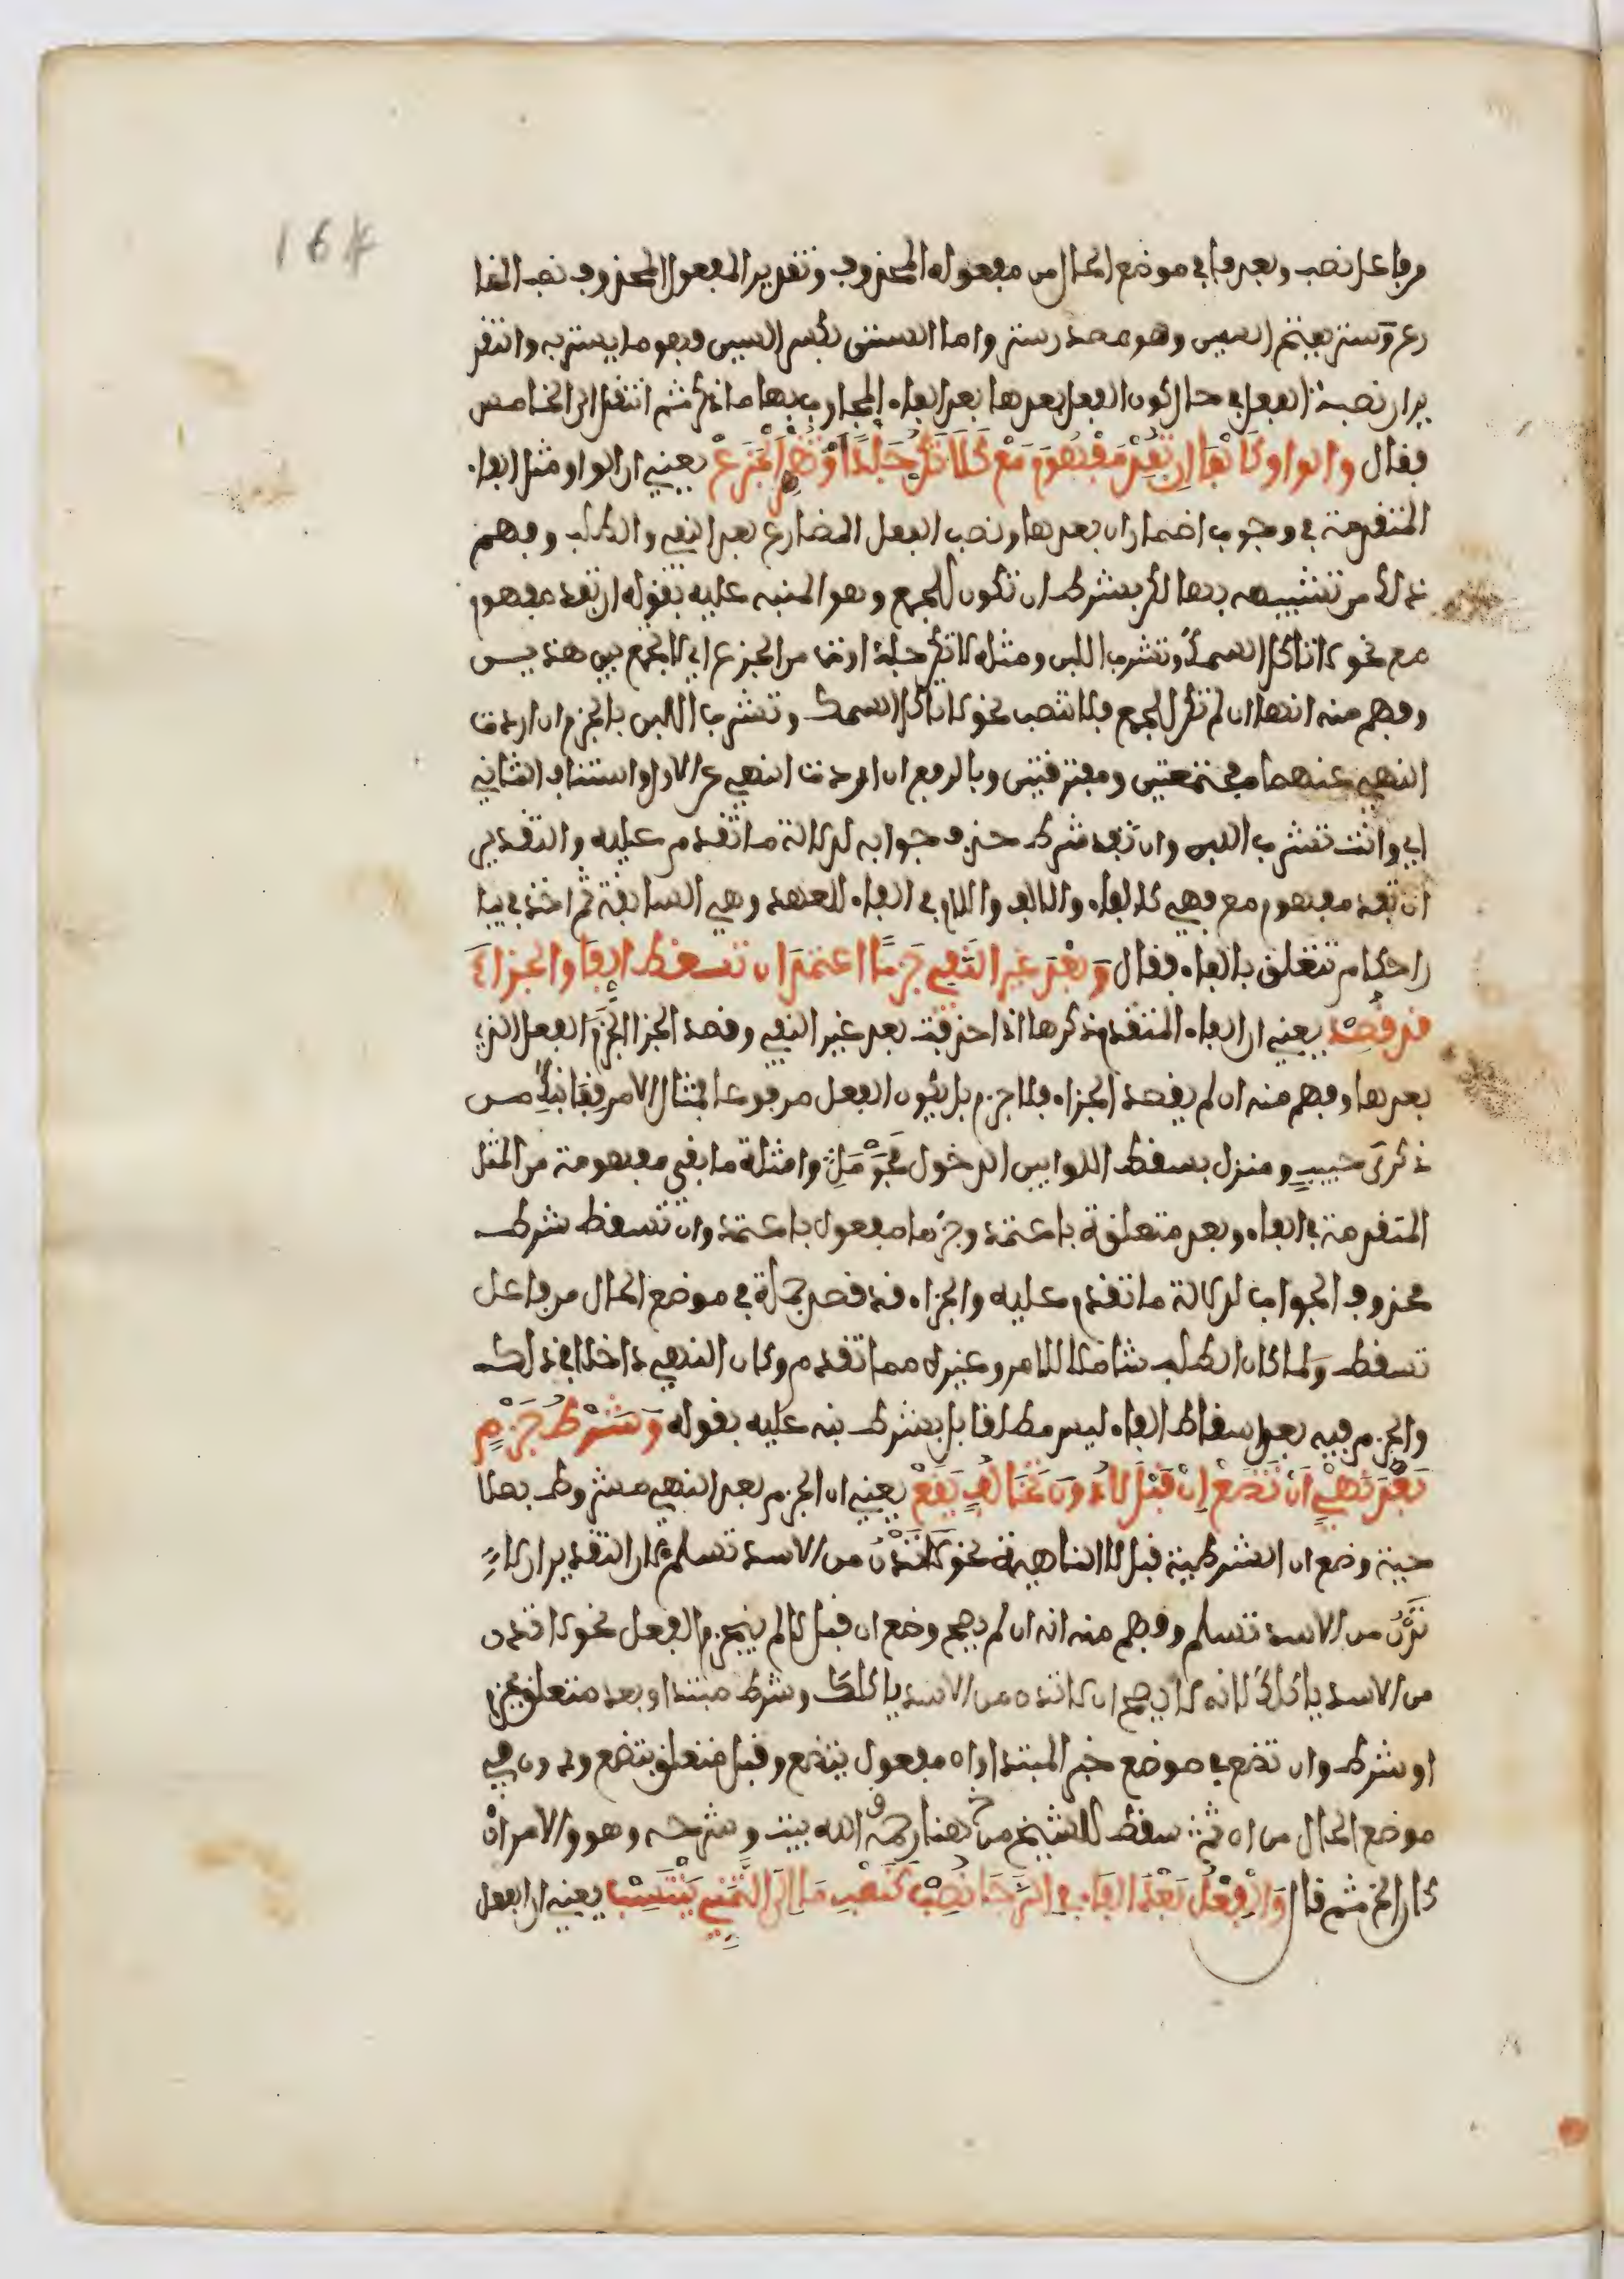 164
من فاعل نصب وبعد فا في موضع الحال من مفعوله المحذوف وتقدير المفعول المحذوف نصب المضا
رع وستر بفتح السين وهو مصدر ستر واما الستر بكسر السين فهو ما يستر به والتقد
ير ان نصبه الفعل في حال كون الفعل بعدها بعد الفاء المجاوب بها ما ذكر ثم انتقل الى الخامس
فقال والواو كالفا ان تفد مفهوم مع كلا تكن جلدا وتظهر الجزع يعني ان الواو مثل الفاء
المتقدمة في وجوب اضمار ان بعدها ونصب الفعل المضارع بعد النفي والطلب وفهم
ذلك من تشبيهه بها لكن بشرط ان تكون للجمع وهو المنبه عليه بقوله ان تفد مفهوم
مع نحو لا تاكل السمك وتشرب اللبن ومثله لا تكن جلدا وتظهر الجزع اي لا تجمع بين هذين
وفهم منه انها ان لم تكن للجمع فلا تنصب نحو لا تاكل السمك وتشرب اللبن بالجزم ان اردت
النهي عنهما مجتمعتين ومفترقتين وبالرفع ان اردت النهي عن الاول واستئناف الثانيه
اي وانت تشرب اللبن وان تفد شرط حذف جوابه لدلالة ما تقدم عليه والتقدير
ان تفد مفهوم مع فهي كالفاء والالف واللام في الفاء للعهد وهي السابقة ثم اخذ في بيا
ن احكام تتعلق بالفاء فقال وبعد غير النفي جزما اعتمد ان تسقط الفا والجزاء
قد قصد يعني ان الفاء المتقدم ذكرها اذا حذفت بعد غير النفي وقصد الجزا انجزم الفعل الذي
بعدها وفهم منه ان لم يقصد الجزاء فلا جزم بل يكون الفعل مرفوعا فمثال الامر قفا نبك من
ذكرى حبيب ومنزل بسقط اللوا بين الدخول فحومل وامثلة ما بقي مفهومة من المثل
المتقدمة في الفاء وبعد متعلقة باعتمد وجزما مفعول باعتمد وان تسقط شرط
محذوف الجواب لدلالة ما تقدم عليه والجزاء قد قصد جملة في موضع الحال من فاعل
تسقط ولما كان الطلب شاملا للامر وغيره مما تقدم وكان النهي داخلا في ذلك
والجزم فيه بعد اسقاط الفاء ليس مطلقا بل بشرط نبه عليه بقوله وشرط جزم
بعد نهي ان تضع ان قبل لا دون تخالف يقع يعني ان الجزم بعد النهي مشروط بصلا
حية وضع ان الشرطية قبل لا الناهية نحو لا تدن من الاسد تسلم اذ التقدير ان لا
تدن من الاسد تسلم وفهم منه انه ان لم يصح وضع ان قبل لا لم ينجزم الفعل نحو لا تدن
من الاسد ياكلك لانه لا يصح ان لا تدن من الاسد ياكلك وشرط مبتدا وبعد متعلق بجزم
او شرط وان تضع في موضع خبر المبتدا وان مفعول بتضع وقبل متعلق بتضع ودون في
موضع الحال من ان ثم سقط للشيخ من هنا رحمه الله بيت وشرحه وهو والامر ان
كان الخ ثم قال والفعل بعد الفاء في الرجا نصب كنصب ما الى التمني ينتسب يعني ان الفعل